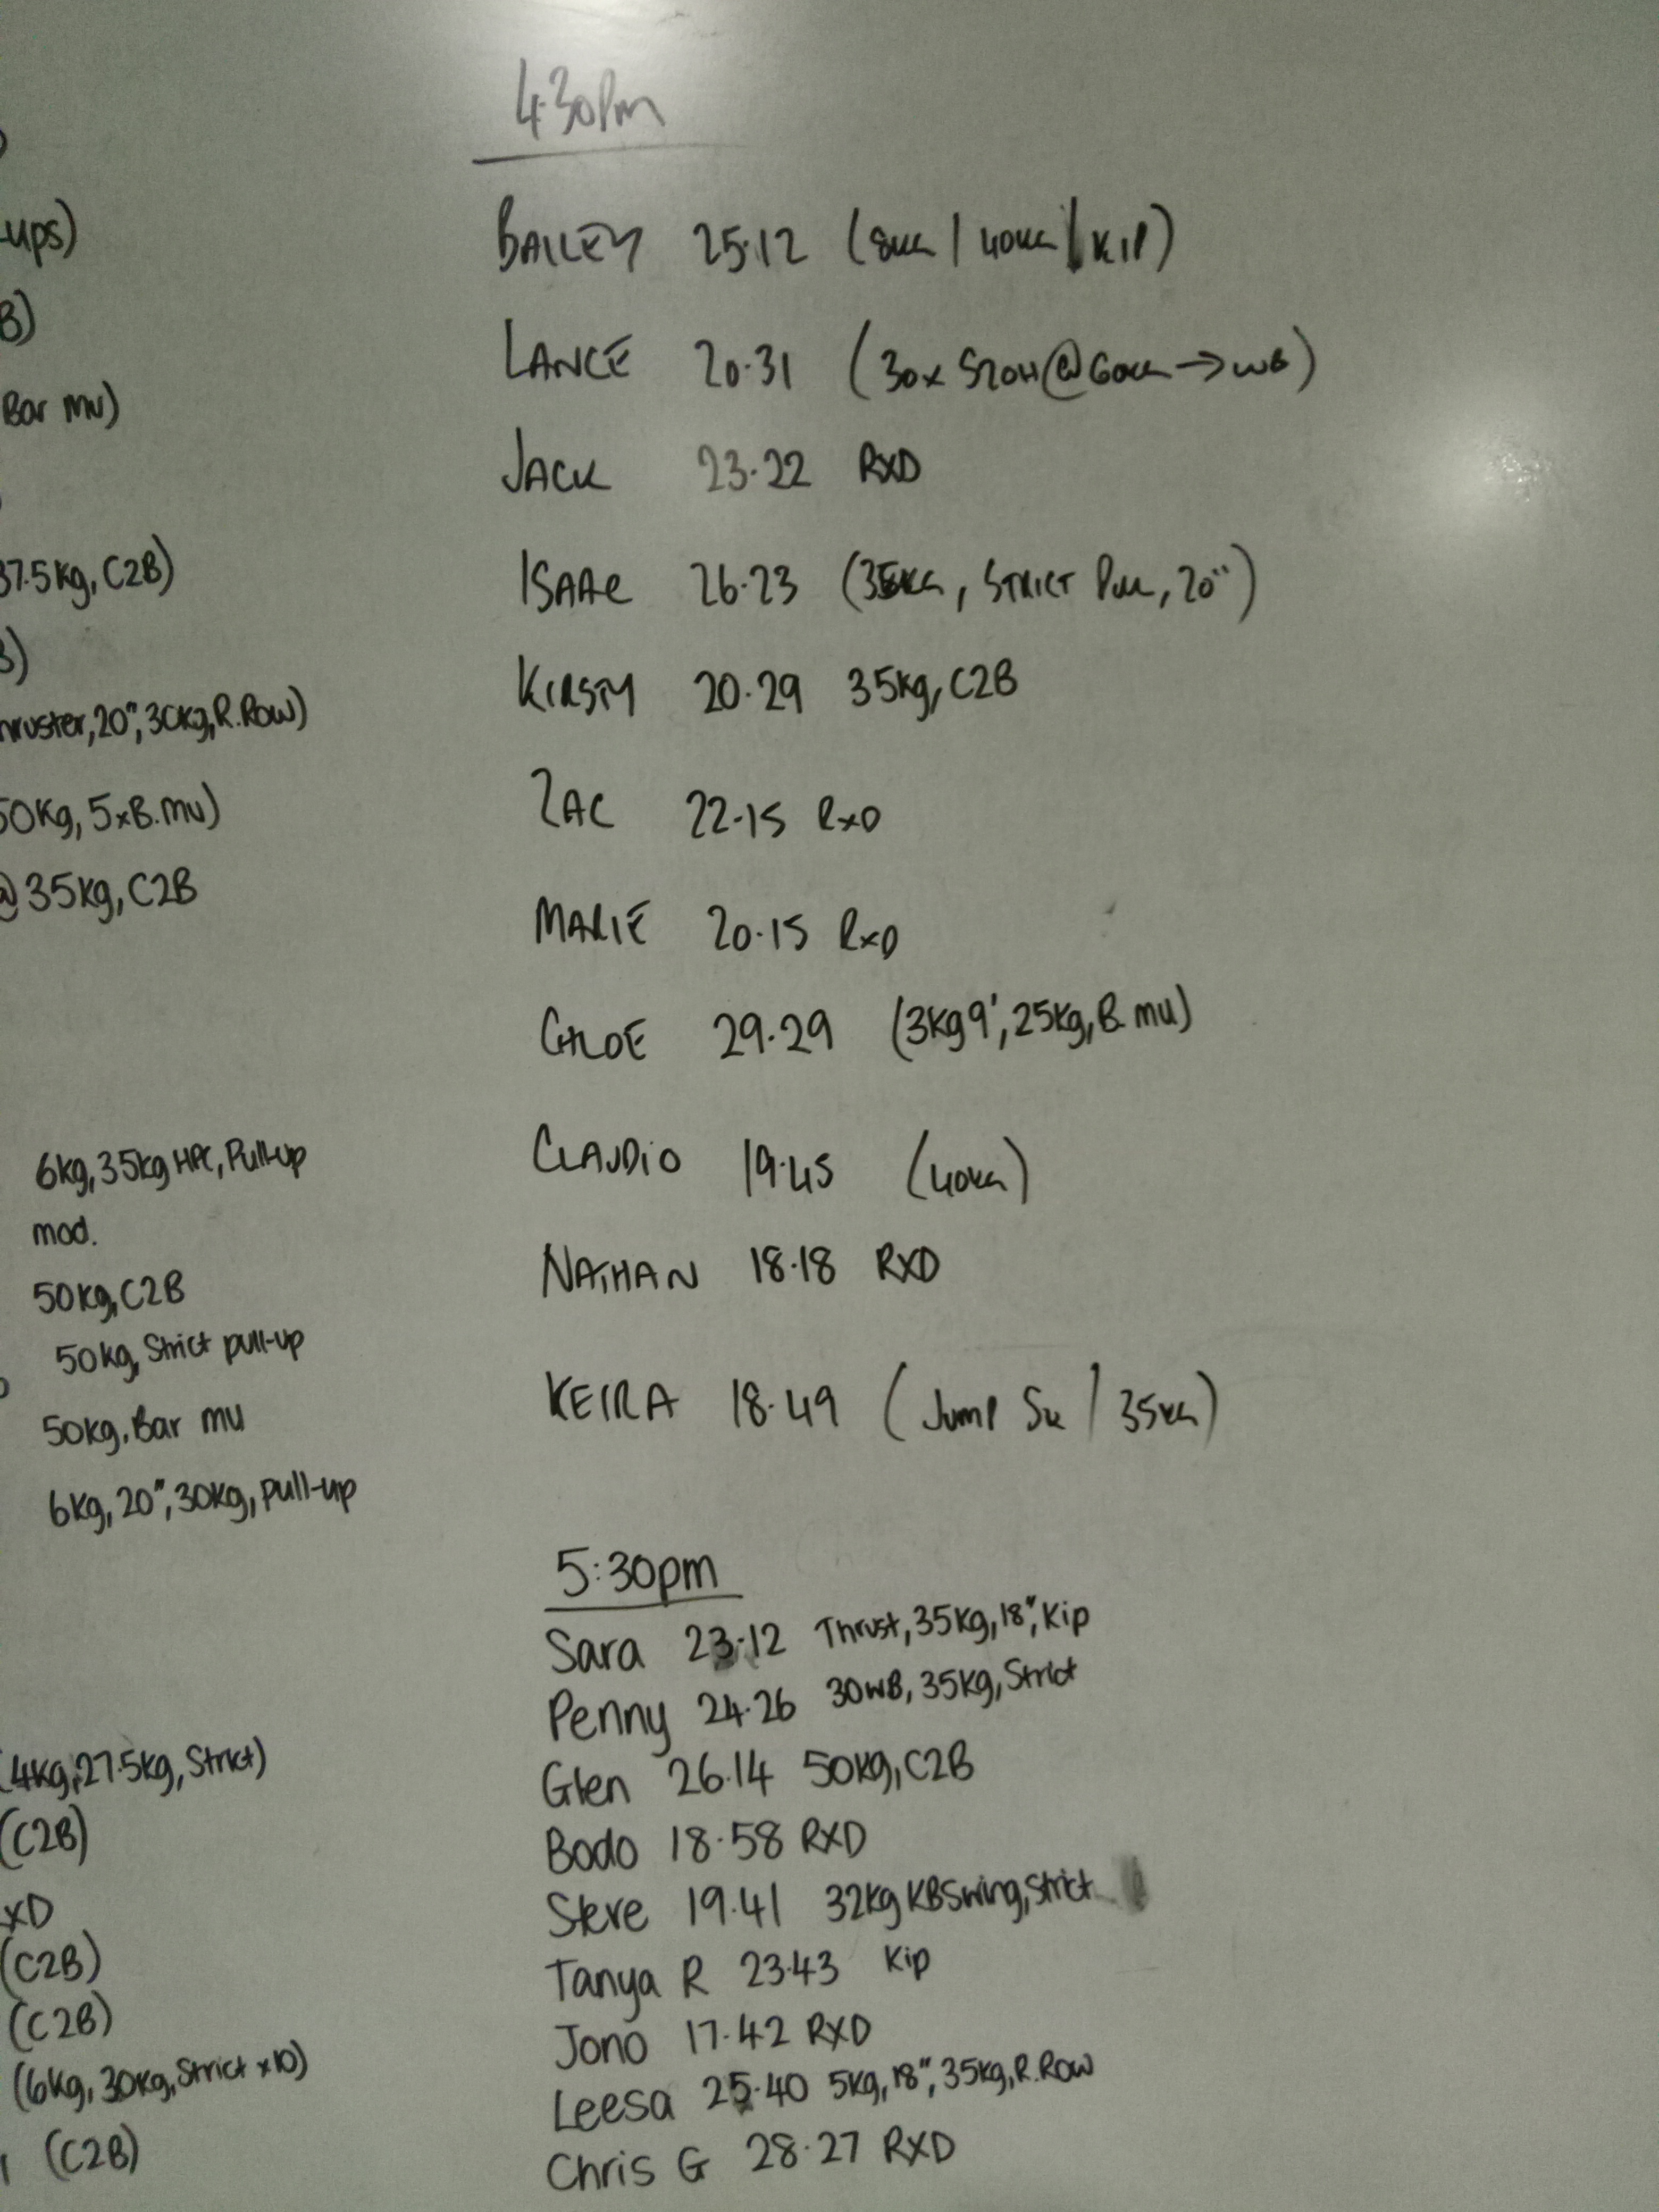 -ups)
B)
Bar mu)
37.5kg, C2B)
B)
hruster, 20", 30kg, R.Row)
50kg, 5xB.mu)
@ 35kg, C2B
6kg, 35kg HPC, Pull-up
mod.
50kg, C2B
50kg, Strict pull-up
50kg, Bar mu
6kg, 20", 30kg, pull-up
(4kg, 27.5kg, Strict)
(C2B)
xD
(C2B)
(C2B)
(6kg, 30kg, Strict x10)
(C2B)
4.30Pm
BAILEY 25.12 (8KG / 40KG / KIP)
LANCE 20.31 (30x S2OH @ 60KG → WB)
JACK 23.22 RXD
ISAAC 26.23 (35KG, STRICT PULL, 20")
KIRSTY 20.29 35kg, C2B
ZAC 22.15 RxD
MARIE 20.15 RxD
CHLOE 29.29 (3kg 9', 25kg, B.mu)
CLAUDIO 19.45 (40KG)
NATHAN 18.18 RXD
KEIRA 18.49 (JUMP SQ / 35KG)
5:30pm
Sara 23.12 Thrust, 35kg, 18", Kip
Penny 24.26 30WB, 35kg, Strict
Glen 26.14 50kg, C2B
Bodo 18.58 RXD
Steve 19.41 32kg KBSwing, Strict
Tanya R 23.43 Kip
Jono 17.42 RXD
Leesa 25.40 5kg, 18", 35kg, R.Row
Chris G 28.27 RXD